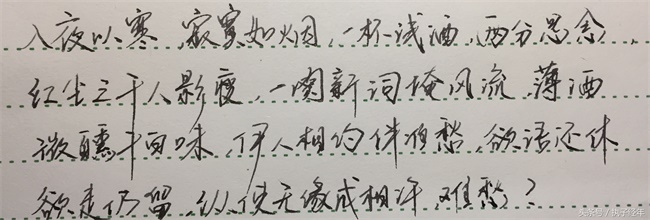 入夜以寒 寂寞如烟，一杯浅酒，两分思念，
红尘三千人影瘦，一阕新词掩风流 薄酒
微醺千百味，伊人相约伴佰愁，欲语还休
欲走仍留，纵使无缘成相许，难愁？
头条@/执子12年